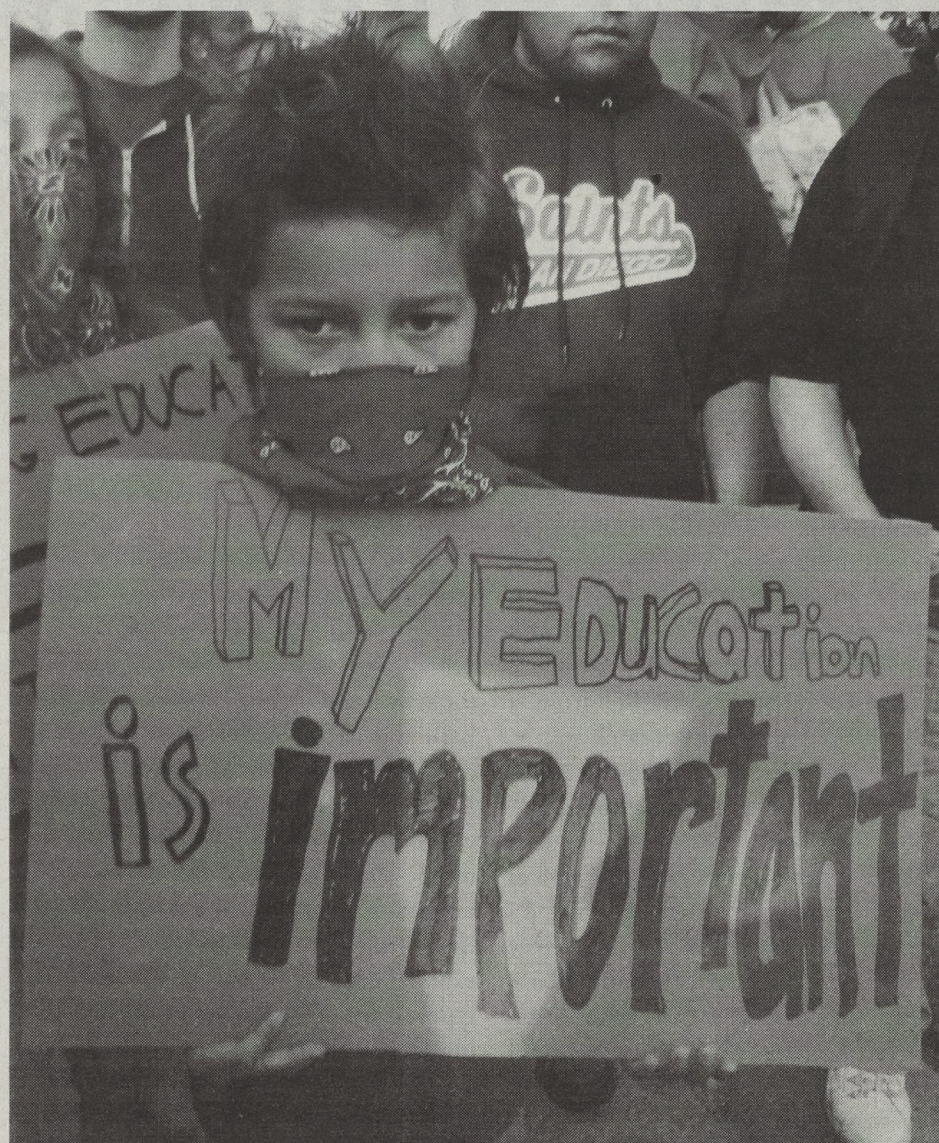 Saints
SAN DIEGO
G EDUCAT
MY EDUCation
is important